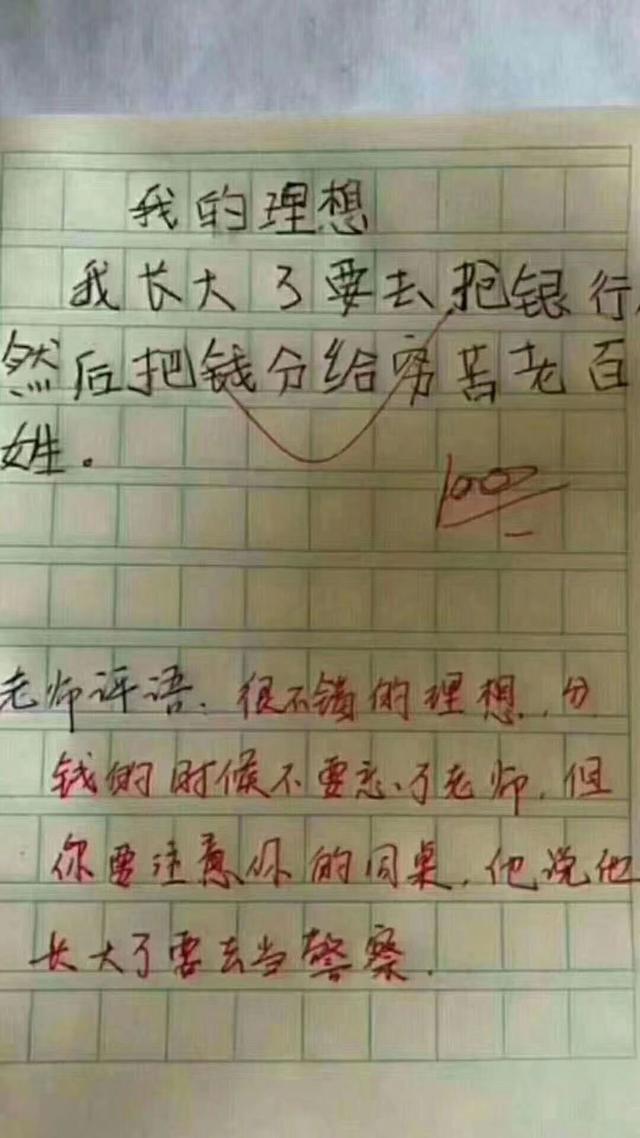 我的理想
我长大了要去抢银行,
然后把钱分给穷苦老百
姓。
100
老师评语.很不错的理想.分
钱的时候不要忘了老师.但
你要注意你的同桌.他说他
长大了要去当警察.